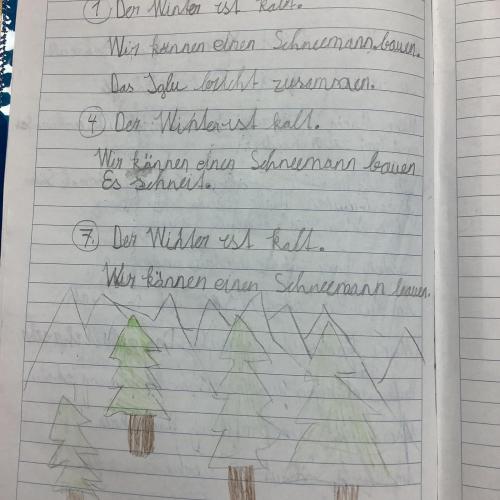 ① Der Winter ist kalt.
Wir können einen Schneemann bauen.
Das Iglu bricht zusammen.
④ Der Winter ist kalt.
Wir kännen einen Schneemann bauen
Es schneit.
⑦ Der Winter ist kalt.
Wir kännen einen Schneemann bauen.